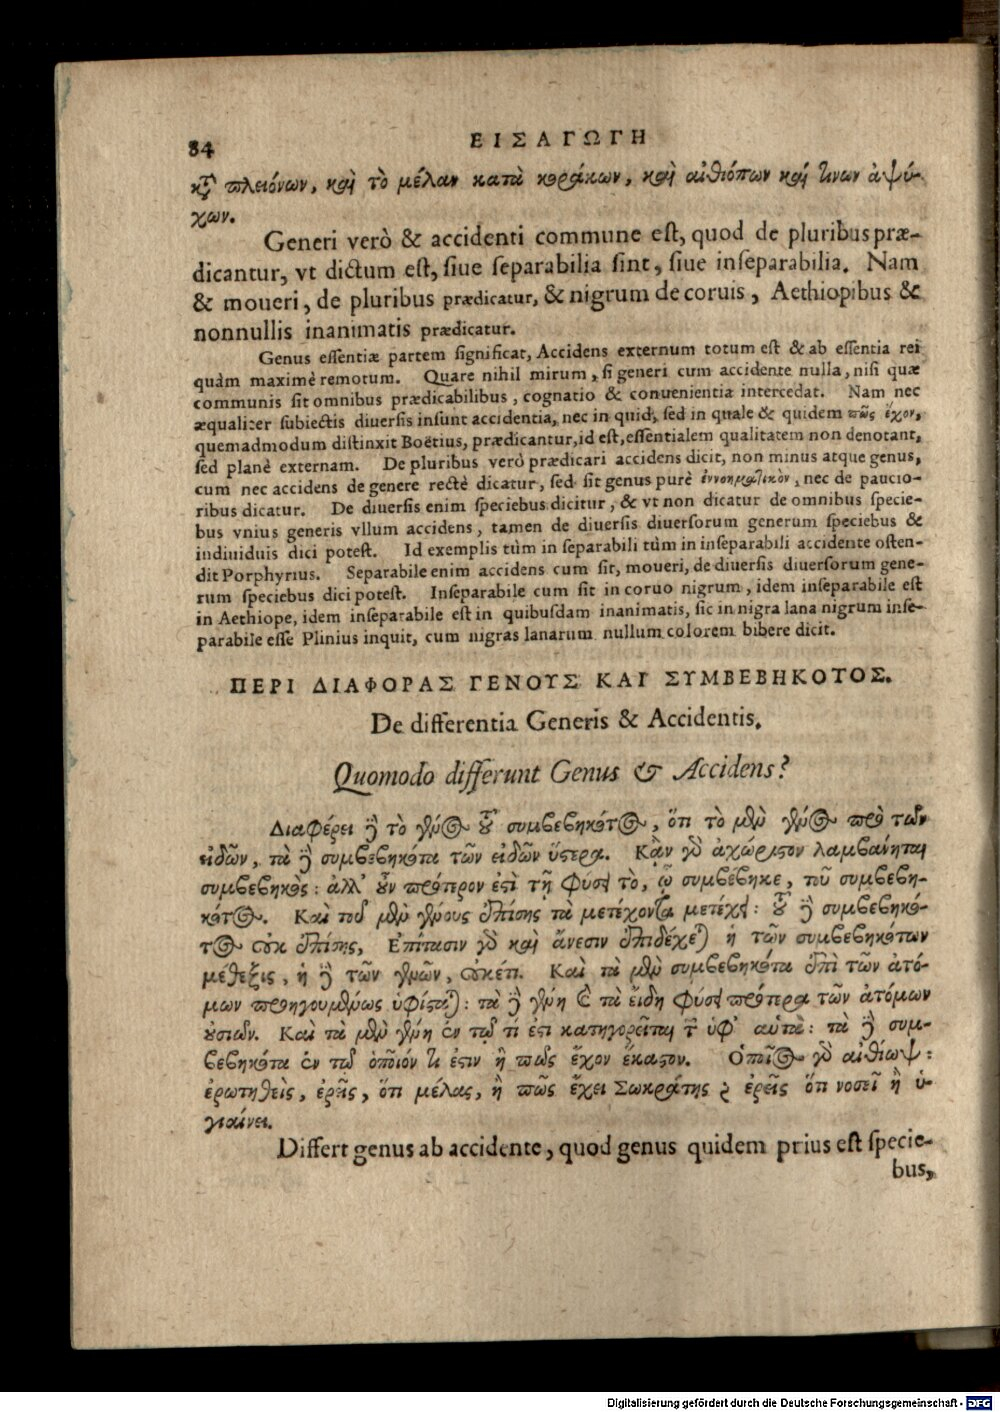 84
ΕΙΣΑΓΩΓΗ
κτ͂ πλειόνων, καὶ τὸ μέλαν κατὰ κοράκων, καὶ αἰθιόπων καὶ τινων ἀψύ-
χων.
Generi verò & accidenti commune eſt, quod de pluribus præ-
dicantur, vt dictum eſt, ſiue ſeparabilia ſint, ſiue inſeparabilia. Nam
& moueri, de pluribus prædicatur, & nigrum de coruis, Aethiopibus &
nonnullis inanimatis prædicatur.
Genus eſſentiæ partem ſignificat, Accidens externum totum eſt & ab eſſentia rei
quàm maximè remotum. Quare nihil mirum, ſi generi cum accidente nulla, niſi quæ
communis ſit omnibus prædicabilibus, cognatio & conuenientia intercedat. Nam nec
æqualiter ſubiectis diuerſis inſunt accidentia, nec in quid, ſed in quale & quidem πῶς ἔχον,
quemadmodum diſtinxit Boëtius, prædicantur, id eſt, eſſentialem qualitatem non denotant,
ſed planè externam. De pluribus verò prædicari accidens dicit, non minus atque genus,
cum nec accidens de genere rectè dicatur, ſed ſit genus purè ἐννοηματικὸν, nec de paucio-
ribus dicatur. De diuerſis enim ſpeciebus dicitur, & vt non dicatur de omnibus ſpecie-
bus vnius generis vllum accidens, tamen de diuerſis diuerſorum generum ſpeciebus &
indiuiduis dici poteſt. Id exemplis tùm in ſeparabili tùm in inſeparabili accidente oſten-
dit Porphyrius. Separabile enim accidens cum ſit, moueri, de diuerſis diuerſorum gene-
rum ſpeciebus dici poteſt. Inſeparabile cum ſit in coruo nigrum, idem inſeparabile eſt
in Aethiope, idem inſeparabile eſt in quibuſdam inanimatis, ſic in nigra lana nigrum inſe-
parabile eſſe Plinius inquit, cum nigras lanarum nullum colorem bibere dicit.
ΠΕΡΙ ΔΙΑΦΟΡΑΣ ΓΕΝΟΥΣ ΚΑΙ ΣΥΜΒΕΒΗΚΟΤΟΣ.
De differentia Generis & Accidentis.
Quomodo differunt Genus & Accidens?
Διαφέρει δὲ τὸ γένος τοῦ συμβεβηκότος, ὅτι τὸ μὲν γένος πρὸ τῶν
εἰδῶν, τὰ δὲ συμβεβηκότα τῶν εἰδῶν ὕστερα. Κἂν γὰρ ἀχώριστον λαμβάνηται
συμβεβηκὸς: ἀλλ' οὖν πρότερον ἐστὶ τῇ φύσει τὸ, ᾧ συμβέβηκε, τοῦ συμβεβη-
κότος. Καὶ τοῦ μὲν γένους ἐπίσης τὰ μετέχοντα μετέχει: τοῦ δὲ συμβεβηκό-
τος οὐκ ἐπίσης, Ἐπίτασιν γὰρ καὶ ἄνεσιν ἐπιδέχεται ἡ τῶν συμβεβηκότων
μέθεξις, ἡ δὲ τῶν γενῶν, οὐκέτι. Καὶ τὰ μὲν συμβεβηκότα ἐπὶ τῶν ἀτό-
μων προηγουμένως ὑφίσταται: τὰ δὲ γένη καὶ τὰ εἴδη φύσει πρότερα τῶν ἀτόμων
οὐσιῶν. Καὶ τὰ μὲν γένη ἐν τῷ τί ἐστι κατηγορεῖται τῶν ὑφ' αὑτὰ: τὰ δὲ συμ-
βεβηκότα ἐν τῷ ὁποῖόν τι ἐστιν ἢ πῶς ἔχον ἕκαστον. Ὁποῖος γὰρ αἰθίωψ:
ἐρωτηθεὶς, ἐρεῖς, ὅτι μέλας, ἢ πῶς ἔχει Σωκράτης ; ἐρεῖς ὅτι νοσεῖ ἢ ὑ-
γιαίνει.
Differt genus ab accidente, quod genus quidem prius eſt ſpecie-
bus,
Digitalisierung gefördert durch die Deutsche Forschungsgemeinschaft - DFG